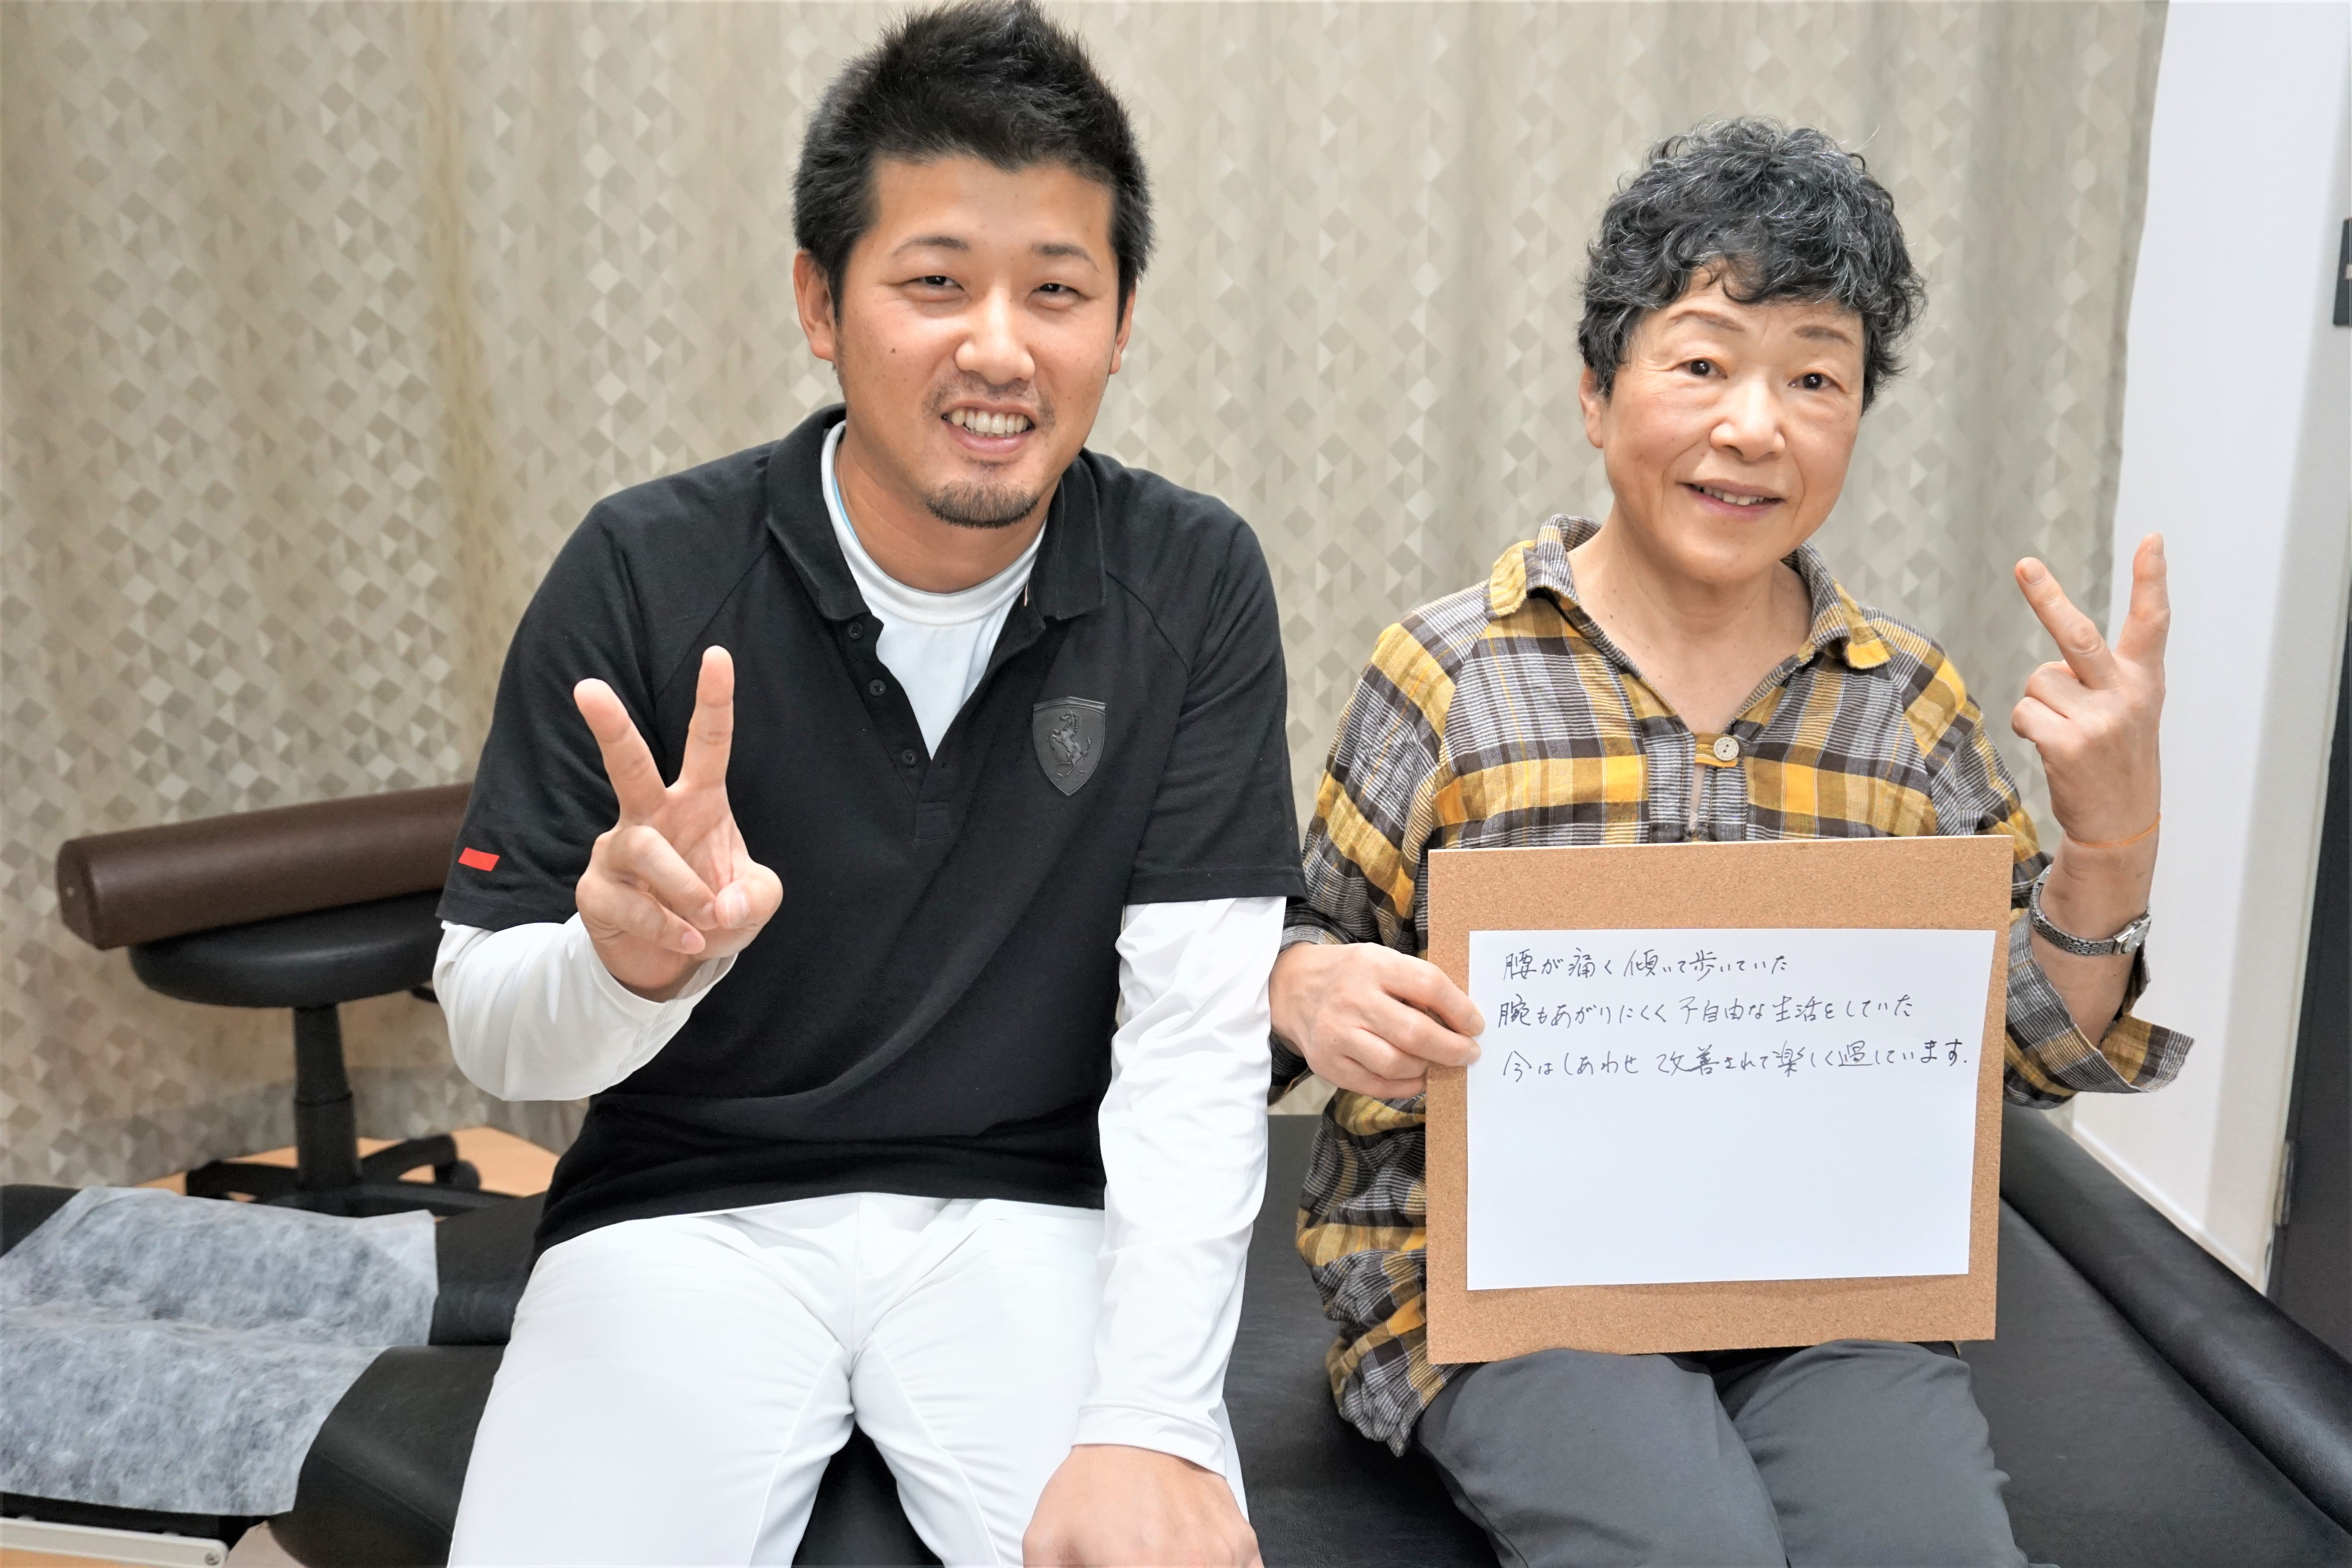 腰が痛く傾いて歩いていた
腕もあがりにくく不自由な生活をしていた
今はしあわせ 改善されて楽しく過しています.